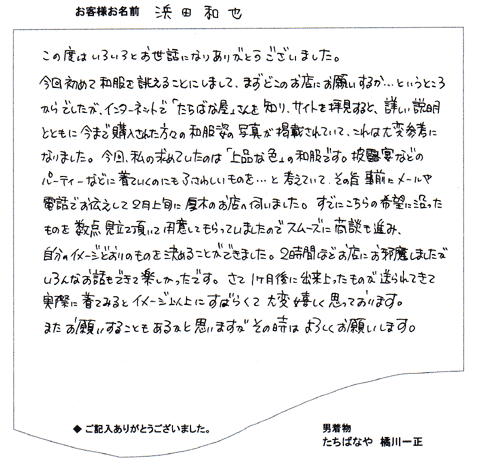 お客様お名前 浜田和也
この度はいろいろとお世話になりありがとうございました。
今回初めて和服を誂えることにしまして、まずどこのお店にお願いするか…というところ
からでしたが、インターネットで「たちばな屋」さんを知り、サイトを拝見すると、詳しい説明
とともに今まで購入された方々の和服姿の写真が掲載されていて、これは大変参考に
なりました。今回、私の求めていたのは「上品な色」の和服です。披露宴などの
パーティーなどに着ていくのにもふさわしいものを…と考えていて、その旨事前にメールや
電話でお伝えして2月上旬に厚木のお店へ伺いました。すでにこちらの希望に沿った
ものを数点見立て頂いて用意してもらっていましたのでスムーズに商談も進み、
自分のイメージどおりのものを決めることができました。2時間ほどお店にお邪魔しましたが
いろんなお話もできて楽しかったです。さて1ヶ月後に出来上ったものが送られてきて
実際に着てみるとイメージ以上にすばらしくて大変嬉しく思っております。
またお願いすることもあるかと思いますがその時はよろしくお願いします。
◆ご記入ありがとうございました。
男着物
たちばなや 橘川一正